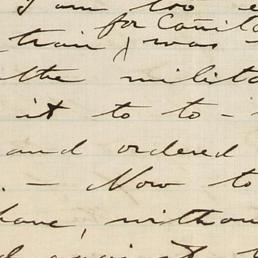 I am too
for
train was
the milit
it to to-
and ordered
. — Now to
have, withou